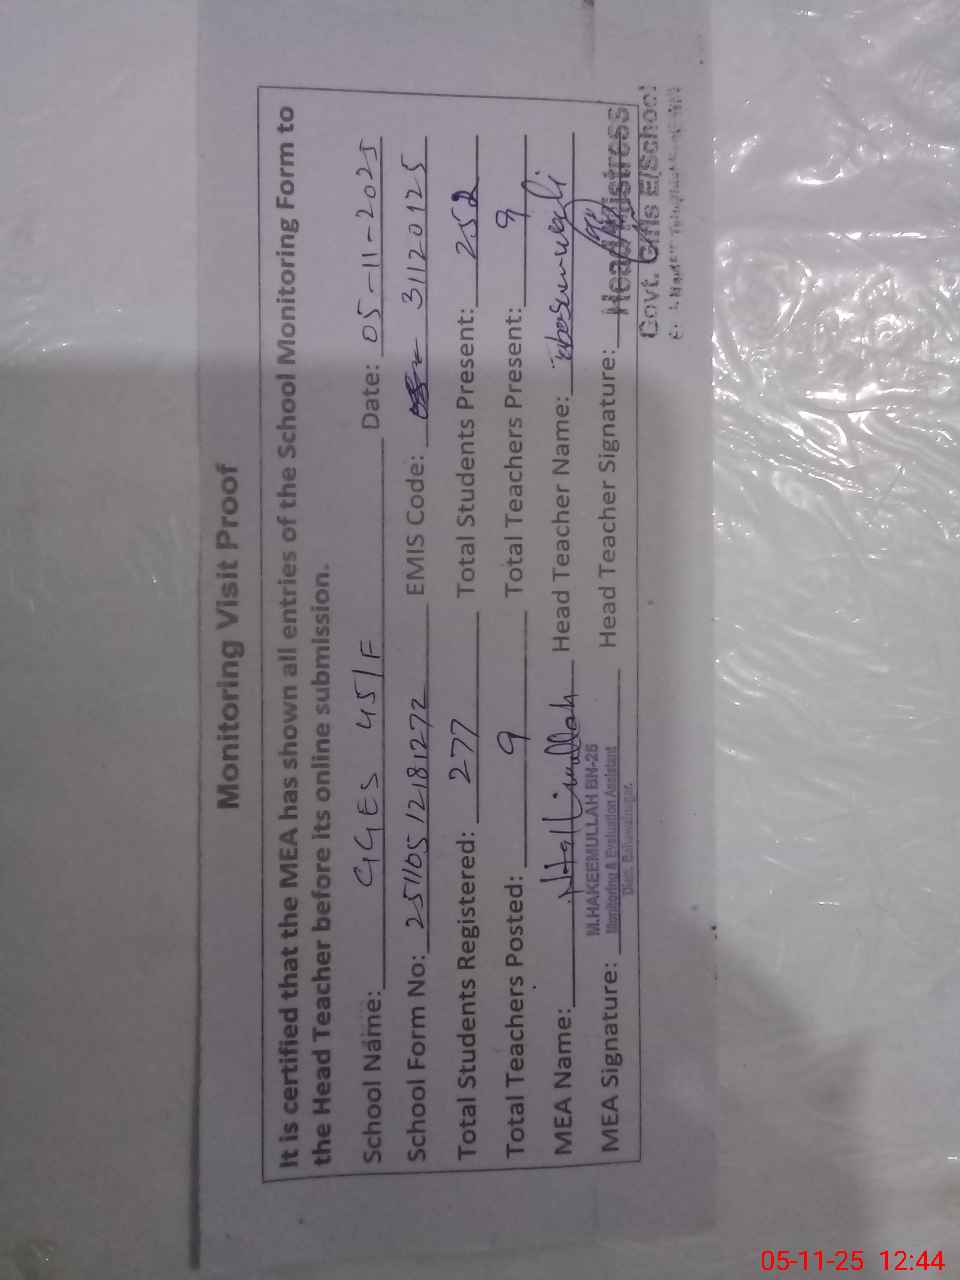 Monitoring Visit Proof
It is certified that the MEA has shown all entries of the School Monitoring Form to
the Head Teacher before its online submission.
School Name: GGES 45/F Date: 05-11-2025
School Form No: 25110512181272 EMIS Code: 31120125
Total Students Registered: 277 Total Students Present: 252
Total Teachers Posted: 9 Total Teachers Present: 9
MEA Name: Head Teacher Name:
M.HAKEEMULLAH BN-26
MEA Signature: Monitoring & Evaluation Assistant Head Teacher Signature: Head Mistress
Distt. Bahawalnagar. Govt. Girls E/School
05-11-25 12:44